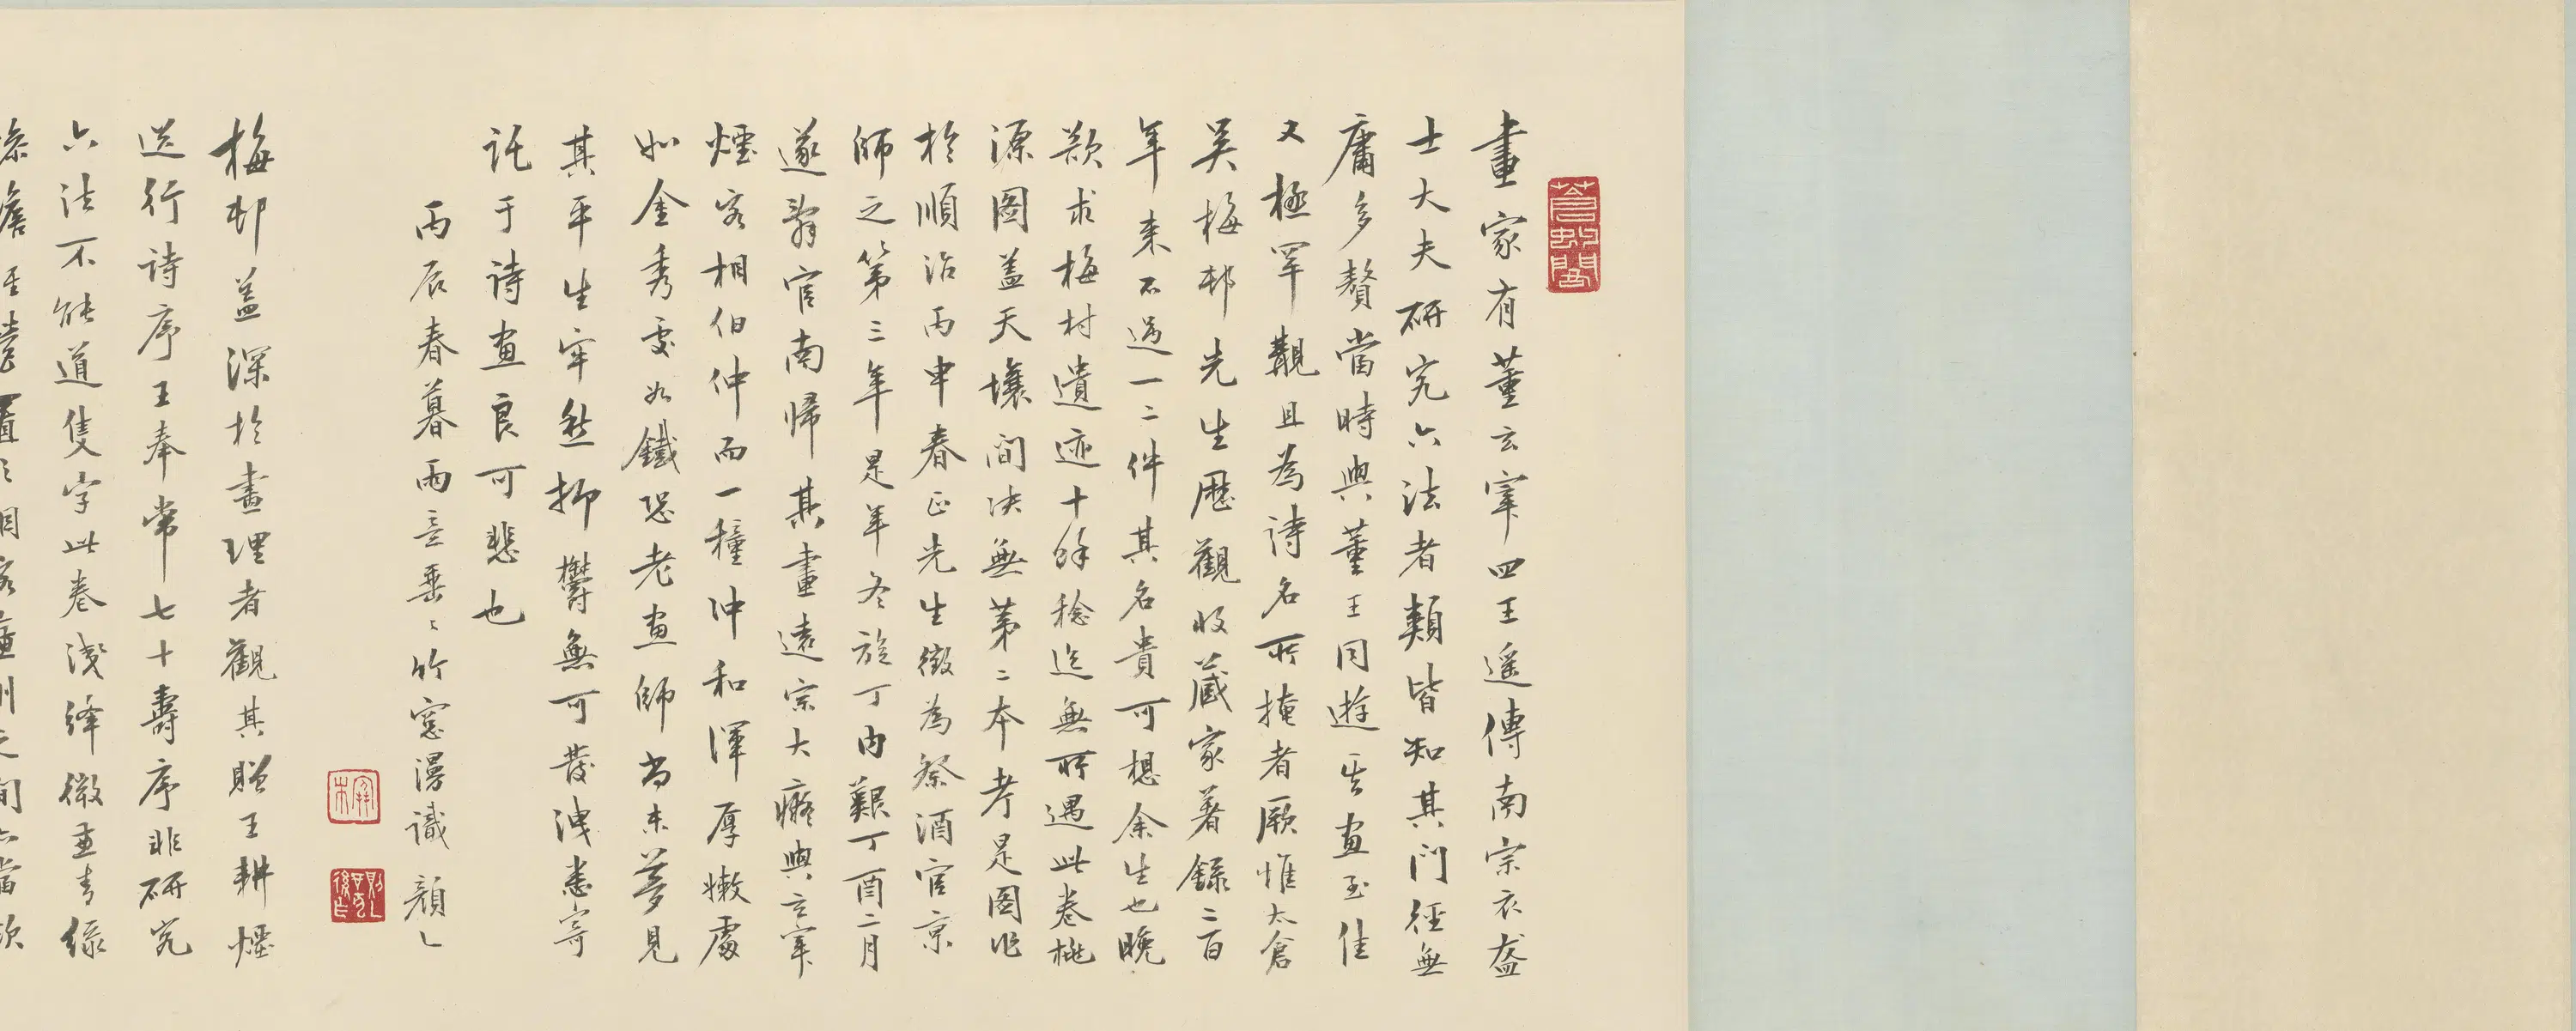 畫家有董玄宰四王遥傳南宗衣盋
士大夫研究六法者類皆知其門徑無
庸多贅當時與董王同遊其畫至佳
又極罕覯且為詩名所掩者厥惟太倉
吴梅邨先生歷觀收藏家著錄二百
年来不過一二件其名貴可想余生也晚
欵求梅村遺迹十餘稔迄無所遇此卷桃
源圖蓋天壤間决無第二本考是圖作
於順治丙申春正先生徵為祭酒官京
師之第三年是年冬旋丁内艱丁酉二月
遂辭官南歸其畫遠宗大癡與玄宰
煙客相伯仲而一種沖和渾厚嫩處
如金秀處如鐵恐老畫師尚未夢見
其平生牢愁抑鬱無可發洩悉寄
託于詩畫良可悲也
丙辰春暮雨音垂垂竹窓漫識 顏
梅邨蓋深於畫理者觀其贈王耕煙
送行詩序王奉常七十壽序非研究
六法不能道隻字此卷淺絳微重青綠